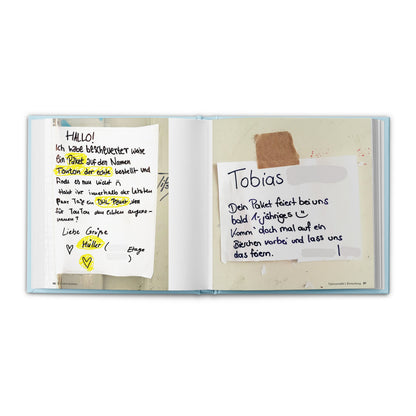 HALLO!
Ich habe bescheuerter weise
ein Paket auf den Namen
Tonton der echte bestellt und
finde es nun nicht
Habt ihr innerhalb der letzten
paar Tage ein DHL Paket
für TonTon den Echten angenommen?
Liebe Grüße
Müller (
Etage
)
Tobias
Dein Paket feiert bei uns
bald 1-jähriges
Komm' doch mal auf ein
Bierchen vorbei und lass uns
das feiern.